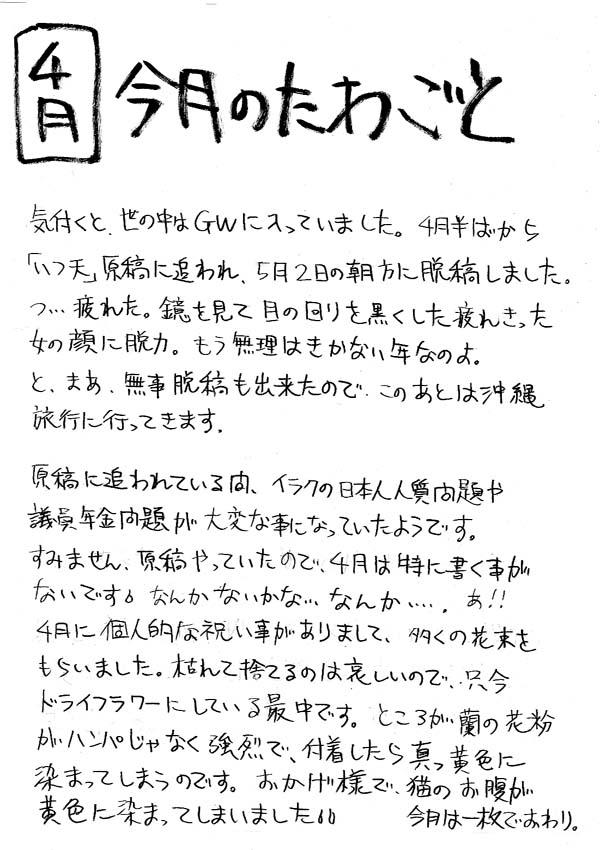 4月 今月のたわごと
気付くと、世の中はGWに入っていました。4月半ばから
「いつ天」原稿に追われ、5月2日の朝方に脱稿しました。
つ…疲れた。鏡を見て目の回りを黒くした疲れきった
女の顔に脱力。もう無理はきかない年なのよ。
と、まあ、無事脱稿も出来たので、このあとは沖縄
旅行に行ってきます。
原稿に追われている間、イラクの日本人人質問題や
議員年金問題が大変な事になっていたようです。
すみません、原稿やっていたので、4月は特に書く事が
ないです。なんかないかな… なんか…。あ!!
4月に個人的な祝い事がありまして、多くの花束を
もらいました。枯れて捨てるのは哀しいので、只今
ドライフラワーにしている最中です。ところが蘭の花粉
がハンパじゃなく強烈で、付着したら真っ黄色に
染まってしまうのです。おかげ様で、猫のお腹が
黄色に染まってしまいました。。 今月は一枚でおわり。